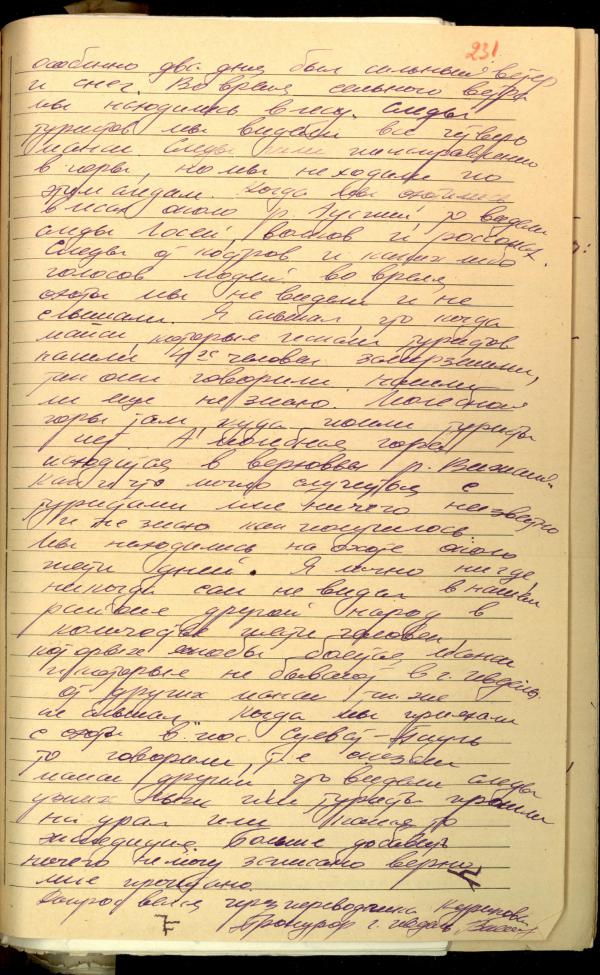 231
особенно два дня был сильный ветер
и снег. Во время сильного ветра
мы находились в лесу. Следы
туристов мы видели все четверо
манси следы шли направлению
в горы, но мы не ходили по
этим следам. Когда мы охотились
в лесах около р. Ауспии, то видели
следы лосей, волков и россомах.
Следы от костров и каких либо
голосов людей во время
охоты мы не видели и не
слышали. Я слышал, что когда
манси, которые искали туристов
нашли 4х человек замерзшими,
так они говорили, нашли
ли еще не знаю. Молебной
горы там куда пошли туристы
нет. А молебная гора
находится в верховьях р. Вижай.
Как и что могло случиться с
туристами мне ничего неизвестно
и не знаю как получилось.
Мы находились на охоте около
пяти дней. Я лично нигде,
никогда сам не видал в нашем
районе другой народ в
количестве пяти человек
которых якобы боятся манси
и которые не бывают в г. Ивдель.
От других манси также
не слышал. Когда мы приехали
с охоты в пос. Суеват-Пауль
то говорили, т.е. сказали
манси другим что видели следы
узких лыж или туристы прошли
на урал или какая то
экспедиция. Больше добавить
ничего не могу записано верно,
мне прочитано.
Допрос велся через переводчика Курикова
Прокурор г. Ивдель